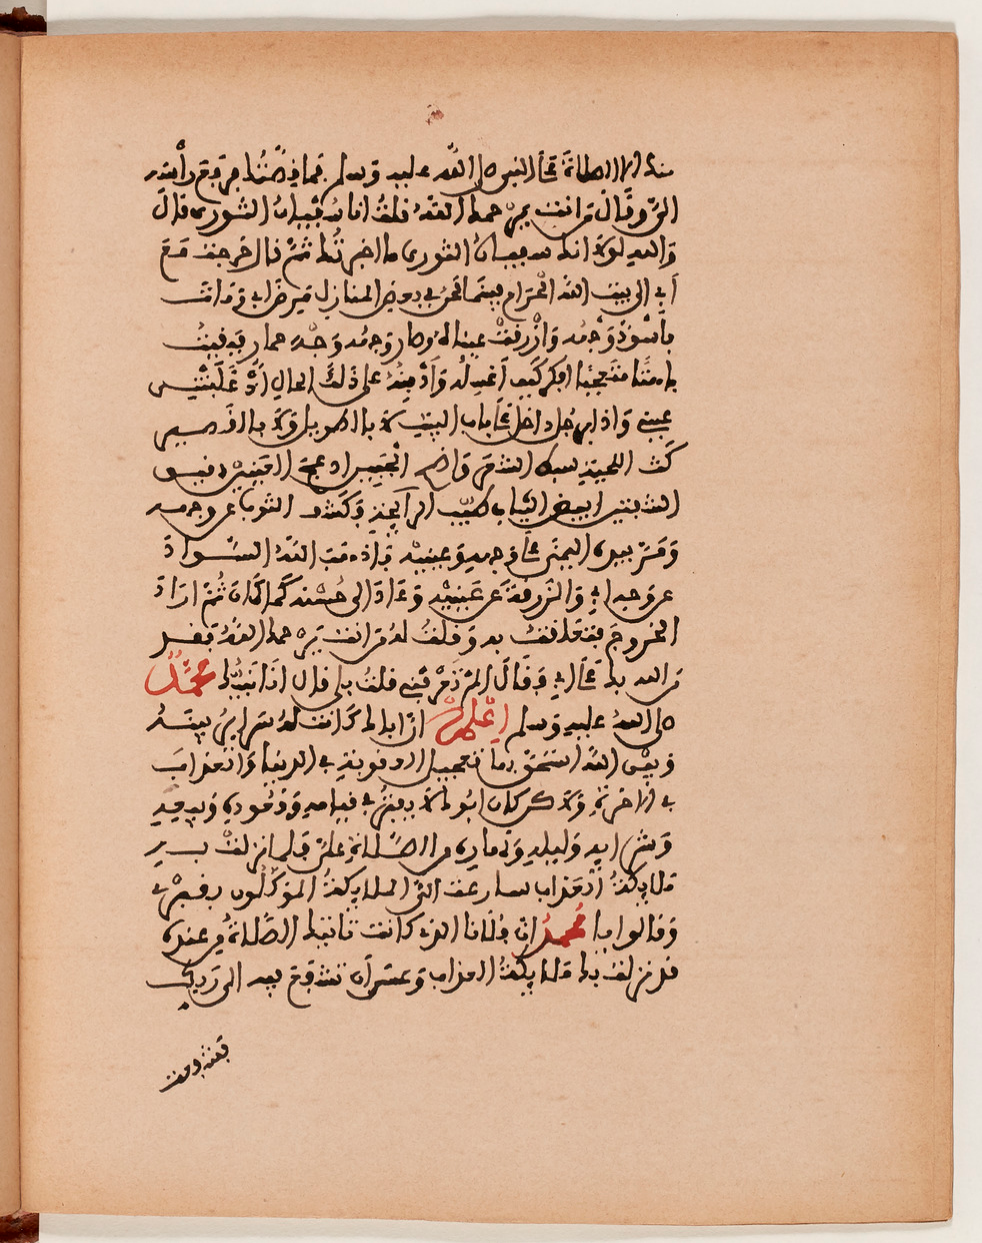 منك الا الصلاة على النبي صلى الله عليه وسلم فما فصتها فرفع رأسه
الي وقال من انت يرحمك الله قلت انا سفيان الثوري قال
والله لولا انك سفيان الثوري ما اخبرتك ثم قال خرجت مع
ابي الى بيت الله الحرام بينما نحن في بعض المنازل مرض ابي ومات
باسود وجهه وازرقت عيناه وصار وجهه وجه حمار فبقيت
متعجبا افكر كيف اغسله وادفنه على ذلك الحال اذ غلبتني
عيني واذا برجل داخل على باب البيت لا بالطويل ولا بالقصير
كث اللحية الشعر واضح الجبين ادعج العينين دقيق
الشفتين ابيض الثياب طيب الرايحة وكشف الثوب عن وجهه
ومر بيده اليمنى على وجهه وعينيه فاذهب الله السواد
عن وجه ابي والزرقة عن عينيه وعاد الى حسنه كما كان ثم اراد
الخروج فتعلقت به وقلت له من انت يرحمك الله فقد
من الله بك على ابي وقال الم تعرفني قلت بلى قال انا نبيك محمد
صلى الله عليه وسلم اعلم ان اباك كانت له سراير بينه
وبين الله استحق بها تعجيل العقوبة في الدنيا والعذاب
في الاخرة ولاكن كان ابوك لا يفتر في قيامه وقعوده
وليله ونهاره من الصلاة علي فلما نزلت به
ملايكة العذاب سارعت الي الملايكة الموكلون بقبري
وقالوا يا محمد ان فلانا الذي كانت تاتيك الصلاة من عنده
قد نزلت به ملايكة العذاب وعسى ان تشفع فيه الى ربك